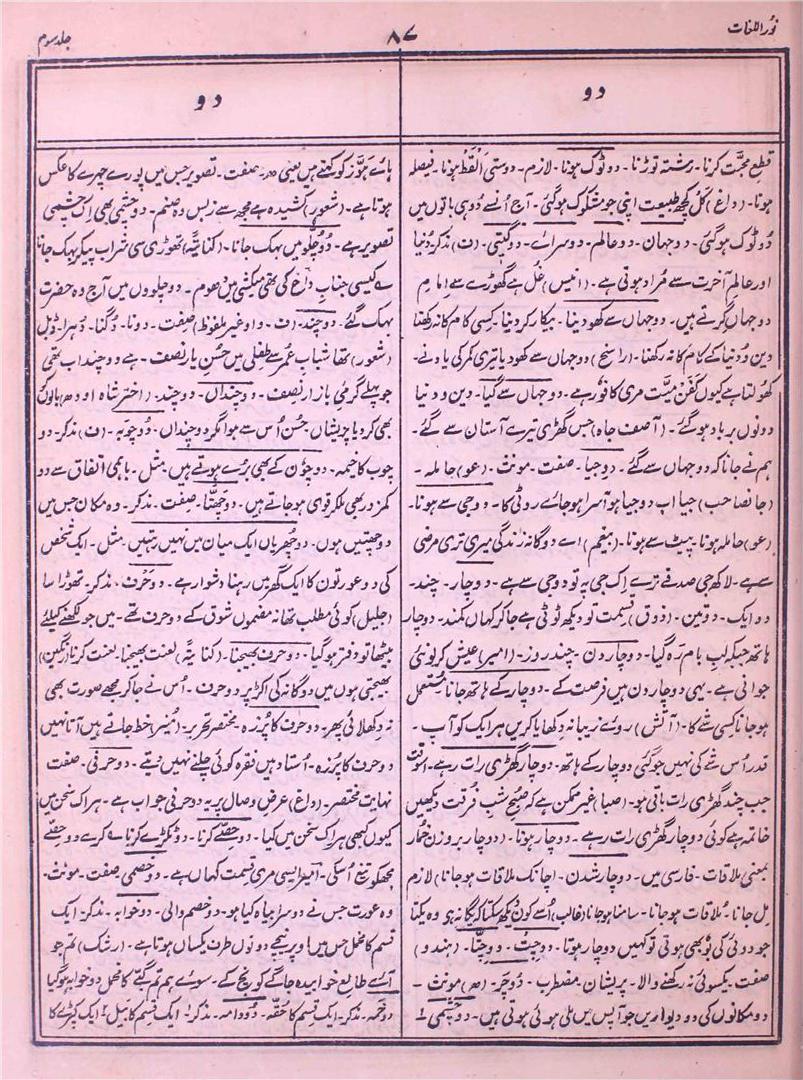 نُور اللغات
۸۷
جلد سوم
دو
دو
قطع محبّت کرنا۔ رشتہ توڑنا۔ دو ٹوک ہونا۔ لازم۔ دوستی اَلْقَط ہونا۔ فیصلہ
ہونا۔ (داغ) کل کچھ طبیعت اپنی جو مشکوک ہوگئی۔ آج اُنسے دو ہی باتوں میں
دو ٹوک ہوگئی۔ دو جہان۔ دو عالم۔ دوسراے۔ دوگیتی۔ (ف) مذکر۔ دُنیا
اور عالمِ آخرت سے مُراد ہوتی ہے۔ (انیس) غُل ہے گھوڑے سے امامِ
دو جہاں گرتے ہیں۔ دو جہاں سے کھو دینا۔ بیکار کر دینا۔ کسی کام کا نہ رکھنا
دین و دُنیا کے کام کا نہ رکھنا۔ (راسخ) دو جہاں سے کھو دیا تیری کمر کی یاد نے۔
کھولتا ہے کیوں کفن میّت مری کافور ہے۔ دو جہاں سے گیا۔ دین و دنیا
دونوں برباد ہوگئے۔ (آصف جاہ) جس گھڑی تیرے آستان سے گئے۔
ہم نے جانا کہ دو جہاں سے گئے۔ دو جیا۔ صفت۔ مونث۔ (عو) حاملہ۔
(جانصاحب) جیا اپ دو جیا ہو آسرا ہو جائے روٹی کا۔ دو جی سے ہونا۔
(عو) حاملہ ہونا۔ پیٹ سے ہونا۔ اے دوگانہ زندگی میری تری مرضی
سے ہے۔ لاکھ جی صدقے ترے اِک جی یہ تو دو جی سے ہے۔ دو چار۔ چند۔
دو ایک۔ دو تین۔ (ذوق) قسمت تو دیکھ ٹوٹی ہے جا کر کہاں کمند۔ دو چار
ہاتھ جبکہ لبِ بام رہ گیا۔ دو چار دن۔ چند روز۔ (امیر) عیش کر لو نئی
جوانی ہے۔ یہی دو چار دن ہیں فرصت کے۔ دو چار کے ہاتھ جانا مستعمل
ہو جانا کسی شے کا۔ (آتش) روئے زیبا نہ دکھایا کریں ہر ایک کو آپ۔
قدر اُس شے کی نہیں جو گئی دو چار کے ہاتھ۔ دو چار گھڑی رات رہے۔ اسوقت
جب چند گھڑی رات باقی ہو۔ (صبا) غیر ممکن ہے کہ صبحِ شبِ فرقت دیکھیں
خاتمہ ہے کوئی دو چار گھڑی رات رہے۔ دو چار ہونا۔ (دو چار بروزن خمار
بمعنی ملاقات۔ فارسی میں۔ دو چار شدن۔ اچانک ملاقات ہو جانا) لازم
مل جانا۔ مُلاقات ہو جانا۔ سامنا ہو جانا (غالب) اُسے کون دیکھ سکتا کہ یگانہ ہے وہ یکتا
جو دوئی کی بُو بھی ہوتی تو کہیں دو چار ہوتا۔ دوچِت۔ دو چِتّا۔ (ہندو)
صفت۔ یکسوئی نہ رکھنے والا۔ پریشان۔ مضطرب۔ دو چَر۔ (ھ) مونث۔
دو مکانوں کی دو دیواریں جو آپس میں ملی ہوئی ہوتی ہیں۔ دو چشمی
ہائے ہوّز کو کہتے ہیں یعنی ھ۔ صفت۔ تصویر جس میں پورے چہرے کا عکس
ہوتا ہے۔ (شعور) کشیدہ ہے مجھ سے زبس وہ صنم۔ دو چشمی بھی اِک چشمی
تصویر ہے۔ دو چلّو میں بہک جانا۔ (کنایۃً) تھوڑی سی شراب پیکر بہک جانا
ے کیسی جناب داغ کی تھی میکشی میں دھوم۔ دو چلووں میں آج وہ حضرت
بہک گئے۔ دو چند۔ (ف۔ واو غیر ملفوظ) صفت۔ دونا۔ دُگنا۔ دُہرا۔ ڈبل
(شعور) تھا شباب عمر سے طفلی میں حُسن یار نصف۔ ہے دو چند اب تھی
جو پہلے گرمی بازار نصف۔ دو چنداں۔ دو چند۔ (اختر شاہ اودھ) بالوں کو
بھی کر دیا پریشاں۔ حُسن اُس سے ہوا مگر دو چنداں۔ دُو چوبہ۔ (ف) مذکر۔ دو
چوب کا خیمہ۔ دو چون کے بھی بُرے ہوتے ہیں۔ مثل۔ باہمی اتفاق سے دو
کمزور بھی ملکر قوی ہو جاتے ہیں۔ دو چھتّا۔ صفت۔ مذکر۔ وہ مکان جس میں
دو چھتیں ہوں۔ دو چھریاں ایک میان میں نہیں رہتیں۔ مثل۔ ایک شخص
کی دو عورتوں کا ایک گھر میں رہنا دشوار ہے۔ دو حَرف۔ مذکر۔ تھوڑا سا
(جلیل) کوئی مطلب تھا نہ مضموں شوق کے دو حرف تھے۔ میں جو لکھنے کیلئے
بیٹھا تو دفتر ہوگیا۔ دو حرف بھیجنا۔ (کنایۃً) لعنت بھیجنا۔ لعنت کرنا (رنگین)
بھیجتی ہوں میں دوگانہ کی اکڑ پر دو حرف۔ اُس نے جا کر مجھے صورت بھی
نہ دکھلائی پھر۔ دو حرف کا پُرزہ۔ مختصر تحریر۔ (امیر) خط جاتے ہیں آتا نہیں
دو حرف کا پُرزہ۔ اُستاد ہیں فقرہ کوئی چلنے نہیں دیتے۔ دو حرفی۔ صفت
نہایت مختصر۔ (داغ) عرض وصال پر یہ دو حرفی جواب ہے۔ ہر اک سخن میں
کیوں کبھی ہر اک سخن میں کیا۔ دو حصّے کرنا۔ دو ٹکڑے کرنا ے کرے دو حصّے
مجھکو تیغ اُسکی۔ امیر ایسی مری قسمت کہاں ہے۔ دو خصمی۔ صفت۔ مونث۔
وہ عورت جس نے دوسرا بیاہ کیا ہو۔ دو خصم والی۔ دو خوابہ۔ مذکر۔ ایک
قسم کا مخمل جس میں اوپر نیچے دونوں طرف یکساں ہوتا ہے۔ (رشک) تم جو
آئے طالع خوابیدہ جاگے سوئے ہم تم
دو خمہ۔ مذکر۔ ایک قسم کا حقّہ۔ دُودامہ۔ مذکر۔ ایک قسم کا ایک کپڑے کا